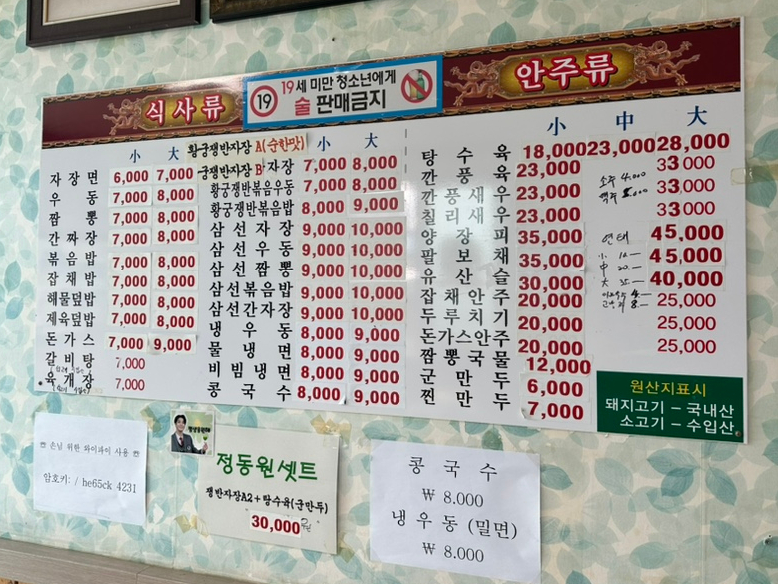 식사류
19
19세 미만 청소년에게
술 판매금지
안주류
小 大
자장면 6,000 7,000
우동 7,000 8,000
짬뽕 7,000 8,000
간짜장 7,000 8,000
볶음밥 7,000 8,000
잡채밥 7,000 8,000
해물덮밥 7,000 8,000
제육덮밥 7,000 8,000
돈가스 7,000 9,000
갈비탕 7,000
육개장 7,000
小 大
황궁쟁반자장 A(순한맛) 7,000 8,000
궁쟁반자장 B 자장 7,000 8,000
황궁쟁반볶음우동 8,000 9,000
황궁쟁반볶음밥
삼선자장 9,000 10,000
삼선우동 9,000 10,000
삼선짬뽕 9,000 10,000
삼선볶음밥 9,000 10,000
삼선간자장 9,000 10,000
냉우동 8,000 9,000
물냉면 8,000 9,000
비빔냉면 8,000 9,000
콩국수 8,000 9,000
小 中 大
탕수육 18,000 23,000 28,000
깐풍육 23,000 33,000
깐풍새우 23,000 33,000
칠리새우 23,000 33,000
양장피 35,000 45,000
팔보채 35,000 45,000
유산슬 30,000 40,000
잡채안주 20,000 25,000
두루치기 20,000 25,000
돈가스안주 20,000 25,000
짬뽕국물 12,000
군만두 6,000
찐만두 7,000
소주 4,000
연태
小 12-
中 20-
大 35-
원산지표시
돼지고기 - 국내산
소고기 - 수입산
손님 위한 와이파이 사용
암호키: / he65ck 4231
정동원셋트
쟁반자장A2+탕수육(군만두)
30,000원
콩국수
₩ 8.000
냉우동 (밀면)
₩ 8.000